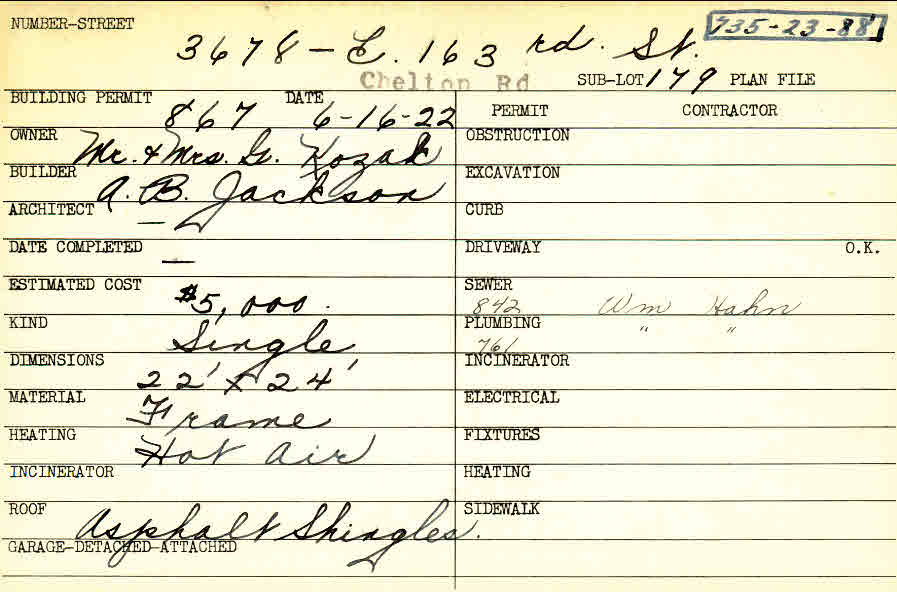 NUMBER-STREET 3678 - E. 163 rd. St. 735-23-88
Chelton Rd SUB-LOT 179 PLAN FILE
BUILDING PERMIT 867 DATE 6-16-22 PERMIT CONTRACTOR
OWNER Mr. & Mrs. G. Kozak OBSTRUCTION
BUILDER A. B. Jackson EXCAVATION
ARCHITECT — CURB
DATE COMPLETED — DRIVEWAY O.K.
ESTIMATED COST $5,000. SEWER 842 Wm Hahn
KIND Single PLUMBING 761 " "
DIMENSIONS 22' x 24' INCINERATOR
MATERIAL Frame ELECTRICAL
HEATING Hot Air FIXTURES
INCINERATOR HEATING
ROOF Asphalt Shingles. SIDEWALK
GARAGE-DETACHED-ATTACHED